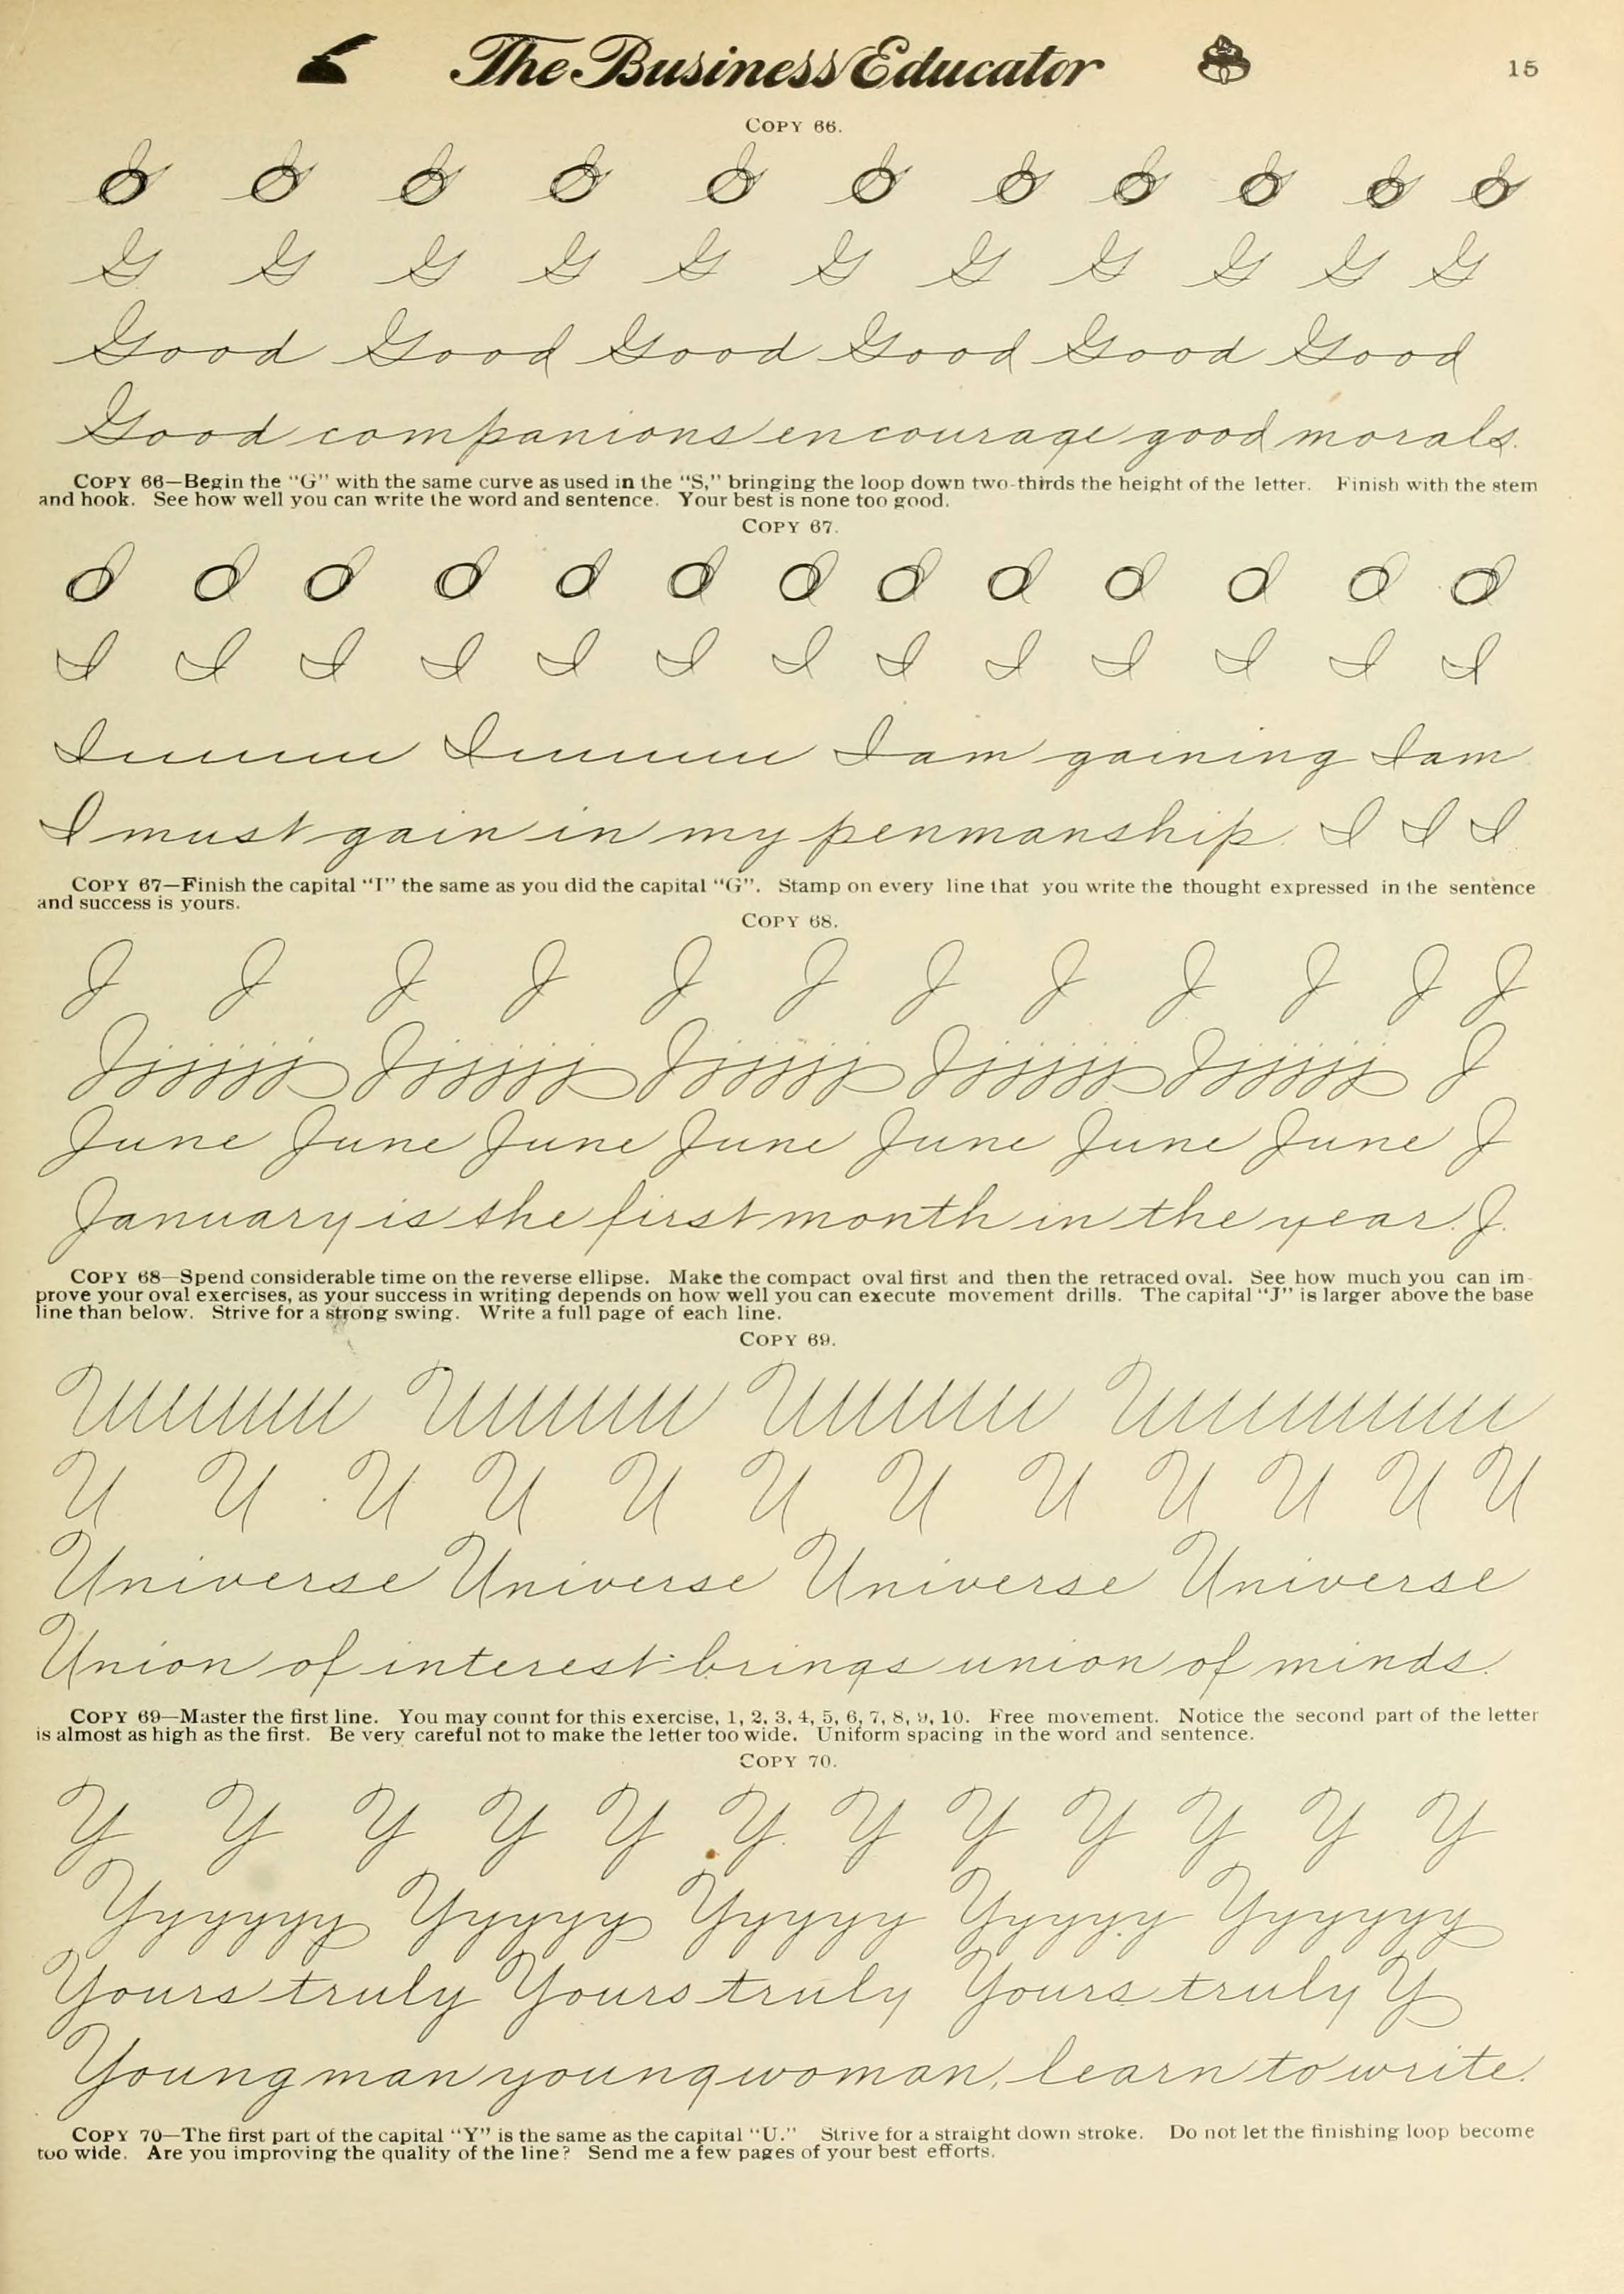 The Business Educator
15
COPY 66.
G G G G G G G G G G G
Good Good Good Good Good Good
Good companions encourage good morals.
COPY 66—Begin the "G" with the same curve as used in the "S," bringing the loop down two-thirds the height of the letter. Finish with the stem
and hook. See how well you can write the word and sentence. Your best is none too good.
COPY 67.
I I I I I I I I I I I I I
Iuuuuu Iuuuuuu I am gaining I am
I must gain in my penmanship. I I I
COPY 67—Finish the capital "I" the same as you did the capital "G". Stamp on every line that you write the thought expressed in the sentence
and success is yours.
COPY 68.
J J J J J J J J J J J J
Jjjjjjj Jjjjjjj Jjjjjjj Jjjjjjj Jjjjjjj J
June June June June June June June J
January is the first month in the year. J.
COPY 68—Spend considerable time on the reverse ellipse. Make the compact oval first and then the retraced oval. See how much you can im-
prove your oval exercises, as your success in writing depends on how well you can execute movement drills. The capital "J" is larger above the base
line than below. Strive for a strong swing. Write a full page of each line.
COPY 69.
U U U U U U U U U U U U
Universe Universe Universe Universe
Union of interest brings union of minds.
COPY 69—Master the first line. You may count for this exercise, 1, 2, 3, 4, 5, 6, 7, 8, 9, 10. Free movement. Notice the second part of the letter
is almost as high as the first. Be very careful not to make the letter too wide. Uniform spacing in the word and sentence.
COPY 70.
Y Y Y Y Y Y Y Y Y Y Y Y
Yyyyyy Yyyyyy Yyyyyy Yyyyyy Yyyyyyy
Yours truly Yours truly Yours truly Y
Young man young woman, learn to write.
COPY 70—The first part of the capital "Y" is the same as the capital "U." Strive for a straight down stroke. Do not let the finishing loop become
too wide. Are you improving the quality of the line? Send me a few pages of your best efforts.